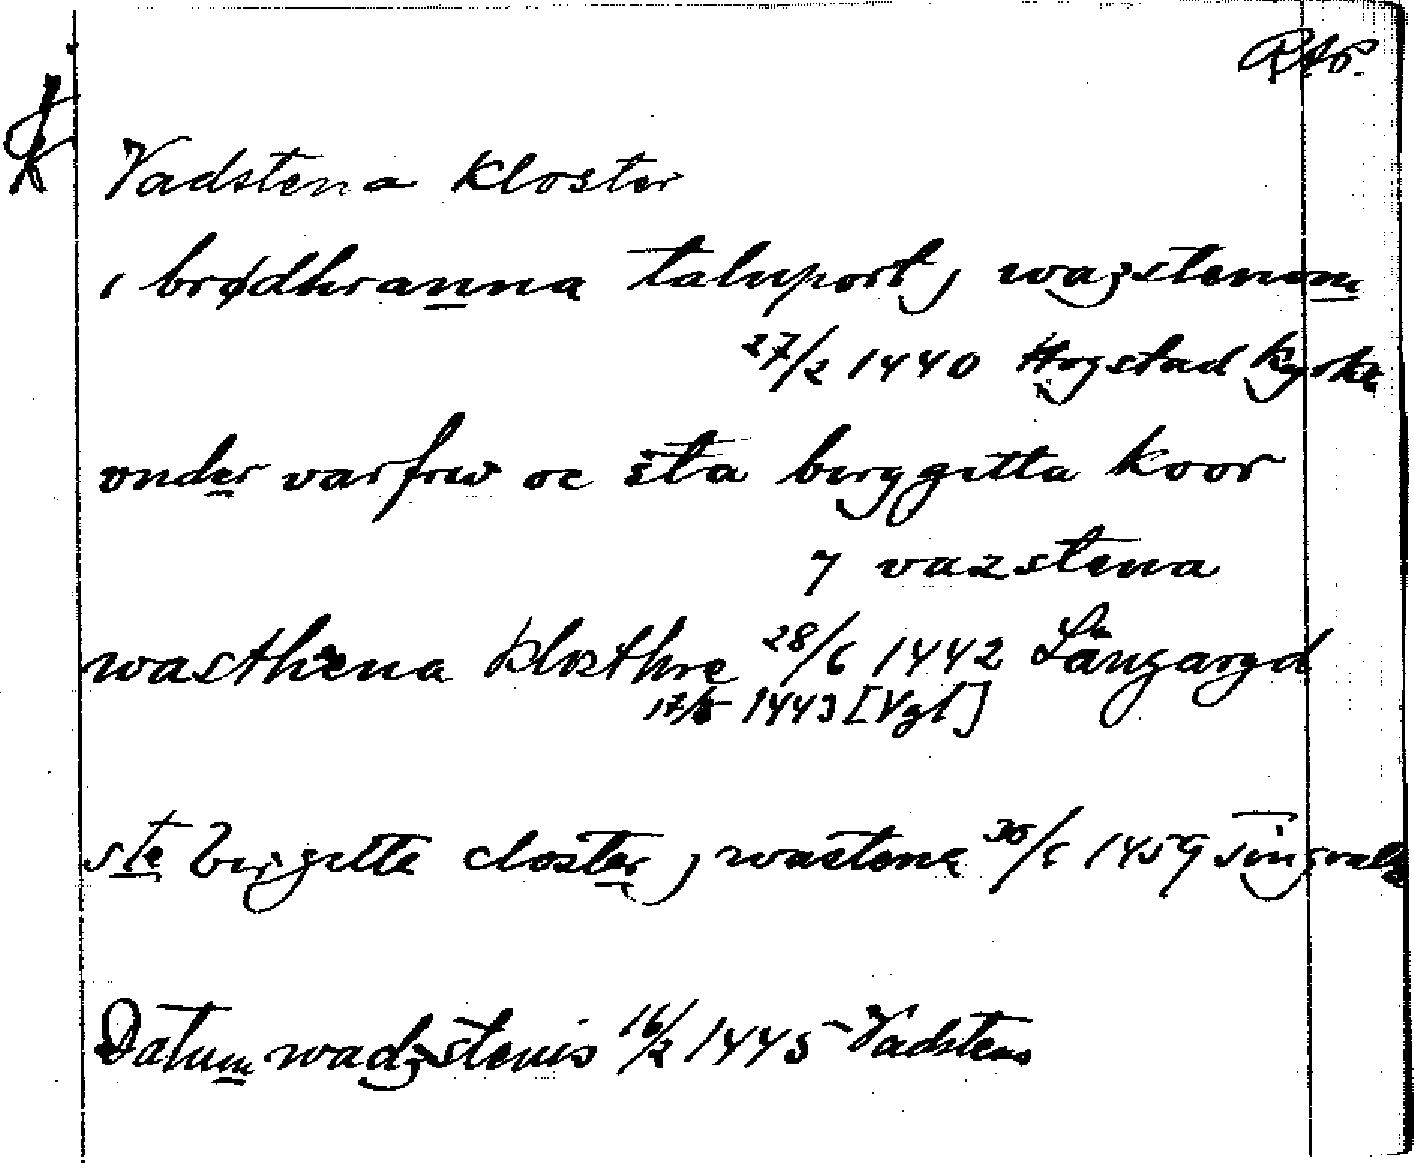 RAP.
Vadstena kloster
i brødhranna taluport j wazstenom
27/2 1440 Hogstad kyrka
onder varfrw oc sta byrggitta koor
7 vazstena
wasthena klosthre 28/6 1442 Långaryd
17/5 1443 [Vgl]
ste birgitte closter j wastena 30/6 1459
Datum wadzstenis 16/2 1445 Vadstena